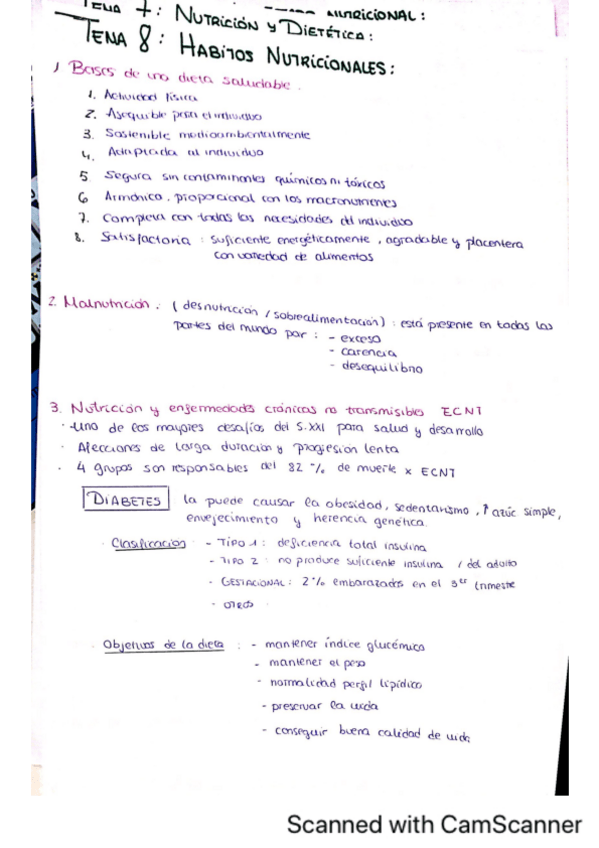 Tema 7: Nutrición y Dietética:
Tema 8: Habitos Nutricionales:
1) Bases de una dieta saludable.
1. Actividad física
2. Asequible para el individuo
3. Sostenible medioambientalmente
4. Adaptada al individuo
5. Segura sin contaminantes químicos ni tóxicos
6 Armónica, proporcional con los macronutrienes
7. Completa con todas las necesidades del individuo
8. Satisfactoria : suficiente energéticamente, agradable y placentera
con variedad de alimentos
2. Malnutrición : (desnutrición / sobrealimentación) : está presente en todas las
partes del mundo por : - exceso
- carencia
- desequilibrio
3. Nutrición y enfermedades crónicas no transmisibles ECNT
· Uno de los mayores desafíos del S.XXI para salud y desarrollo
· Afecciones de larga duración y progresión lenta
· 4 grupos son responsables del 82 % de muerte x ECNT
DIABETES la puede causar la obesidad, sedentarismo, ↑ azúc simple,
envejecimiento y herencia genética.
· Clasificación - Tipo 1 : deficiencia total insulina
- Tipo 2 : no produce suficiente insulina / del adulto
- Gestacional : 2 % embarazadas en el 3er trimestre
- otros
· Objetivos de la dieta : - mantener índice glucémico
- mantener el peso
- normalidad perfil lipídico
- preservar la vida
- conseguir buena calidad de vida
Scanned with CamScanner